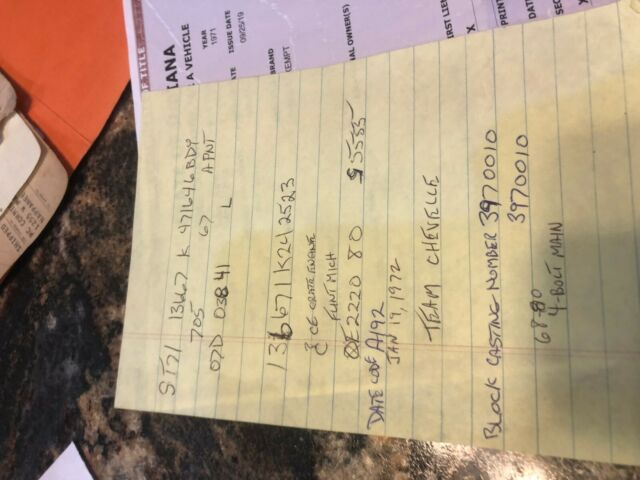 OF TITLE
IANA
A VEHICLE
YEAR
1971
ISSUE DATE
09/25/19
BRAND
EXEMPT
AL OWNER(S)
FIRST LIEN
X
PRINT
DAT
X
ST71 13667 K 971646 BDY
705 67 A PNT
07D 03841 L
13667 1K242523
CE CRATE ENGINE
FLINT MICH
2220 80 $5535
DATE CODE A192
JAN 19, 1972
TEAM CHEVELLE
BLOCK CASTING NUMBER 3970010
3970010
68-80
4-BOLT MAIN